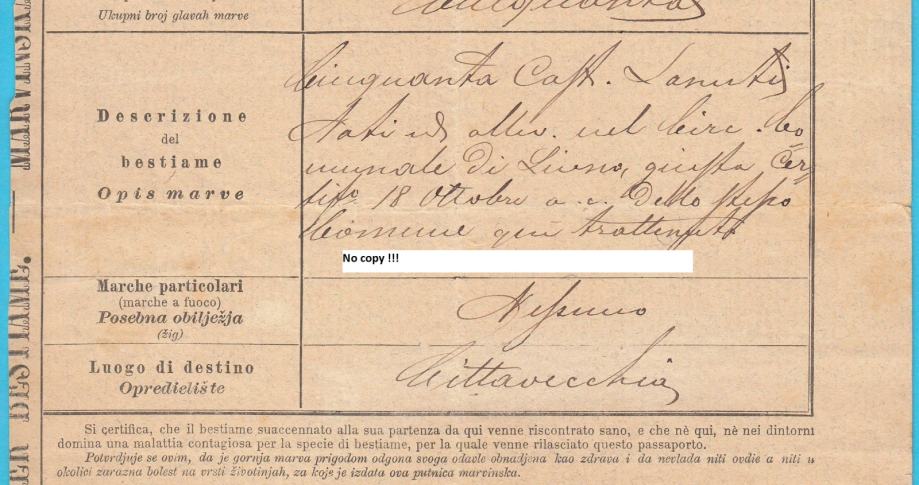 Ukupni broj glavah marve
Cinquanta
Descrizione
del
bestiame
Opis marve
Cinquanta Cast. Lanuti
Nati ed allev. nel Circ. Co
munale di Livno, giusta Cer,
tifto 18 Ottobre a. c. dello stesso
Comune qui trattenuti
No copy !!!
Marche particolari
(marche a fuoco)
Posebna obilježja
(žig)
Nessuno
Luogo di destino
Opredielište
Cittavecchia
Si certifica, che il bestiame suaccennato alla sua partenza da qui venne riscontrato sano, e che nè qui, nè nei dintorni
domina una malattia contagiosa per la specie di bestiame, per la quale venne rilasciato questo passaporto.
Potvrdjuje se ovim, da je gornja marva prigodom odgona svoga odavle obnadjena kao zdrava i da nevlada niti ovdie a niti u
okolici zarazna bolest na vrsti životinjah, za koje je izdata ova putnica marvinska.